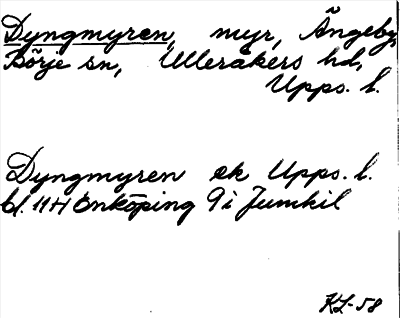 Dyngmyren, myr, Ängeby,
Börje sn, Ulleråkers hd,
Upps. l.
Dyngmyren ek Upps. l.
bl. 11H Enköping 9i Jumkil
KL-58